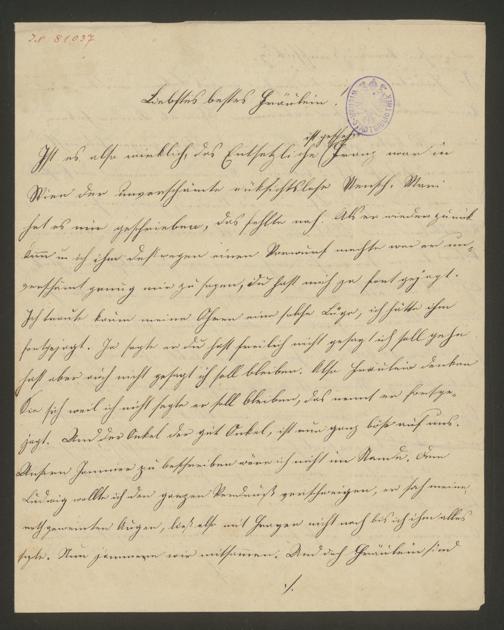 I.N. 81037
Liebstes bestes Fräulein!
ist geschehen
Ist es also wirklich, das Entsetzliche Franz war in
Wien der unverschämte rücksichtslose Mensch. Marie
hat es mir geschrieben, das fehlte noch. Als er wieder zurück
kam u ich ihm deßwegen einen Vorwurf machte war er un-
verschämt genug mir zu sagen, du hast mich ja fortgejagt.
Ich traute kaum meine Ohren eine solche Lüge, ich hätte ihn
fortgejagt. Ja sagte er du hast freilich nicht gesagt ich soll gehn
hast aber auch nicht gesagt ich soll bleiben. Also Fräulein denken
Sie sich weil ich nicht sagte er soll bleiben, das nennt er fortge-
jagt. Und der Onkel der gute Onkel, ist nun ganz böse auf uns.
Unsern Jammer zu beschreiben wäre ich nicht im Stande. Dem
Ludwig wollte ich den ganzen verschweigen, er sah meine
rothgeweinten Augen, ließ also mit Fragen nicht nach bis ich ihm alles
sagte. Nun jammern wir mitsammen. Und doch Fräulein sind
./.